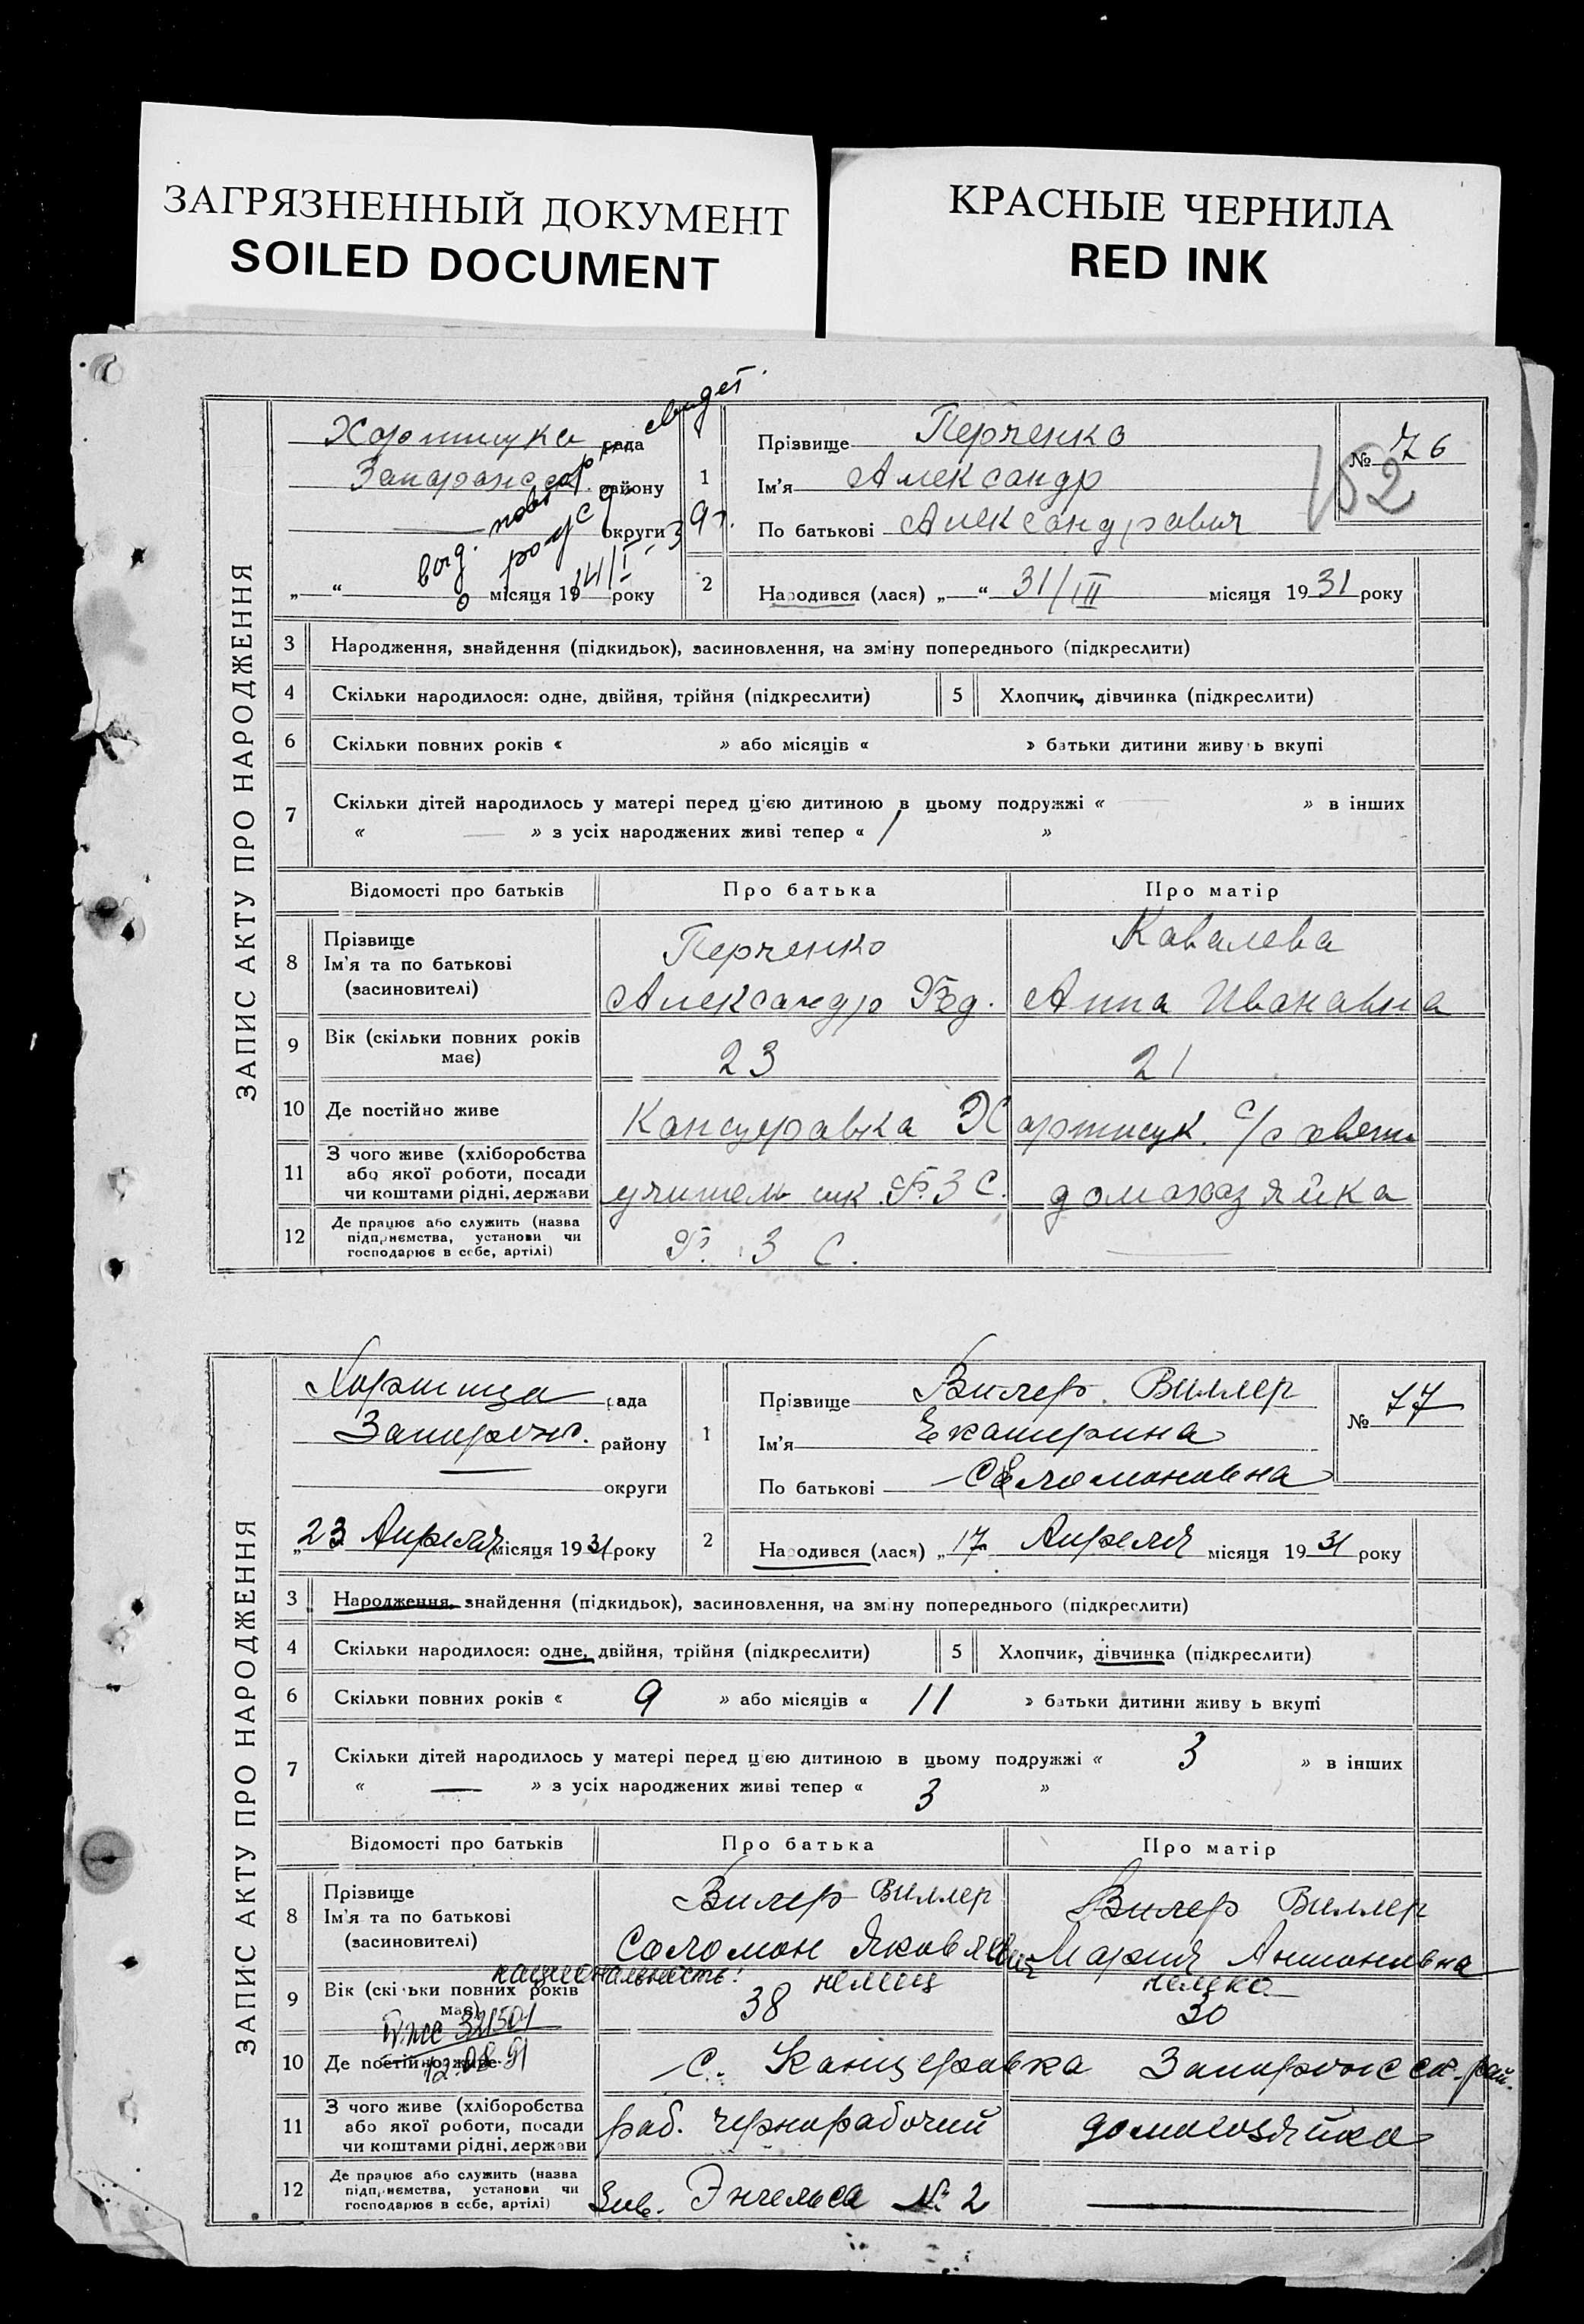 ЗАГРЯЗНЕННЫЙ ДОКУМЕНТ
SOILED DOCUMENT
КРАСНЫЕ ЧЕРНИЛА
RED INK
ЗАПИС АКТУ ПРО НАРОДЖЕННЯ
рада
району
округи
місяця 19 року
1
Прізвище Перченко
Ім'я Александр
По батькові Александрович
№ 76
152
2
Народився (лася) „ “ 31/III місяця 1931 року
3 Народження, знайдення (підкидьок), засиновлення, на зміну попереднього (підкреслити)
4 Скільки народилося: одне, двійня, трійня (підкреслити) 5 Хлопчик, дівчинка (підкреслити)
6 Скільки повних років « » або місяців « » батьки дитини живуть вкупі
7 Скільки дітей народилось у матері перед цією дитиною в цьому подружжі « — » в інших
« — » з усіх народжених живі тепер « 1 »
Відомості про батьків Про батька Про матір
8 Прізвище
Ім'я та по батькові
(засиновителі)
Перченко
Александр Фед.
Кавалева
Анна Ивановна
9 Вік (скільки повних років має) 23 21
10 Де постійно живе Канцеравка
11 З чого живе (хліборобства
або якої роботи, посади
чи коштами рідні, держави
учитель шк. Ф.З.С. домохазяйка
12 Де працює або служить (назва
підприємства, установи чи
господарює в себе, артілі)
Ф. З С. —
ЗАПИС АКТУ ПРО НАРОДЖЕННЯ
Хортица рада
Запорож. району
— округи
„23 Апреля місяця 1931 року
1
Прізвище Вилер. Виллер
Ім'я Екатерина
По батькові Соломоновна
№ 77
2
Народився (лася) „17 Апреля місяця 1931 року
3 Народження, знайдення (підкидьок), засиновлення, на зміну попереднього (підкреслити)
4 Скільки народилося: одне, двійня, трійня (підкреслити) 5 Хлопчик, дівчинка (підкреслити)
6 Скільки повних років « 9 » або місяців « 11 » батьки дитини живуть вкупі
7 Скільки дітей народилось у матері перед цією дитиною в цьому подружжі « 3 » в інших
« — » з усіх народжених живі тепер « 3 »
Відомості про батьків Про батька Про матір
8 Прізвище
Ім'я та по батькові
(засиновителі)
Вилер Виллер
Соломон Яковлевич
Вилер Виллер
Мария Антоновна
национальность: немец немка
9 Вік (скільки повних років має) 38 30
321501
12.08.91
10 Де постійно живе с. Канцеровка Запорожск. рай.
11 З чого живе (хліборобства
або якої роботи, посади
чи коштами рідні, держави
раб. чернорабочий домохозяйка
12 Де працює або служить (назва
підприємства, установи чи
господарює в себе, артілі)
Зав. Энгельса № 2 —